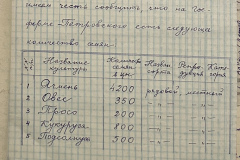 имеем честь сообщить что на Го-
сферме-Петровского есть следующее
количество семян
№ Название культуры Количество семян в цн. Назв. сорта Репро-дукция Кате-гория
1 Ячмень 4200 рядовой местный
2 Овес 350 " "
3 Просо 200 " "
4 Кукуруза 800 " "
5 Подсолнух 500 " "